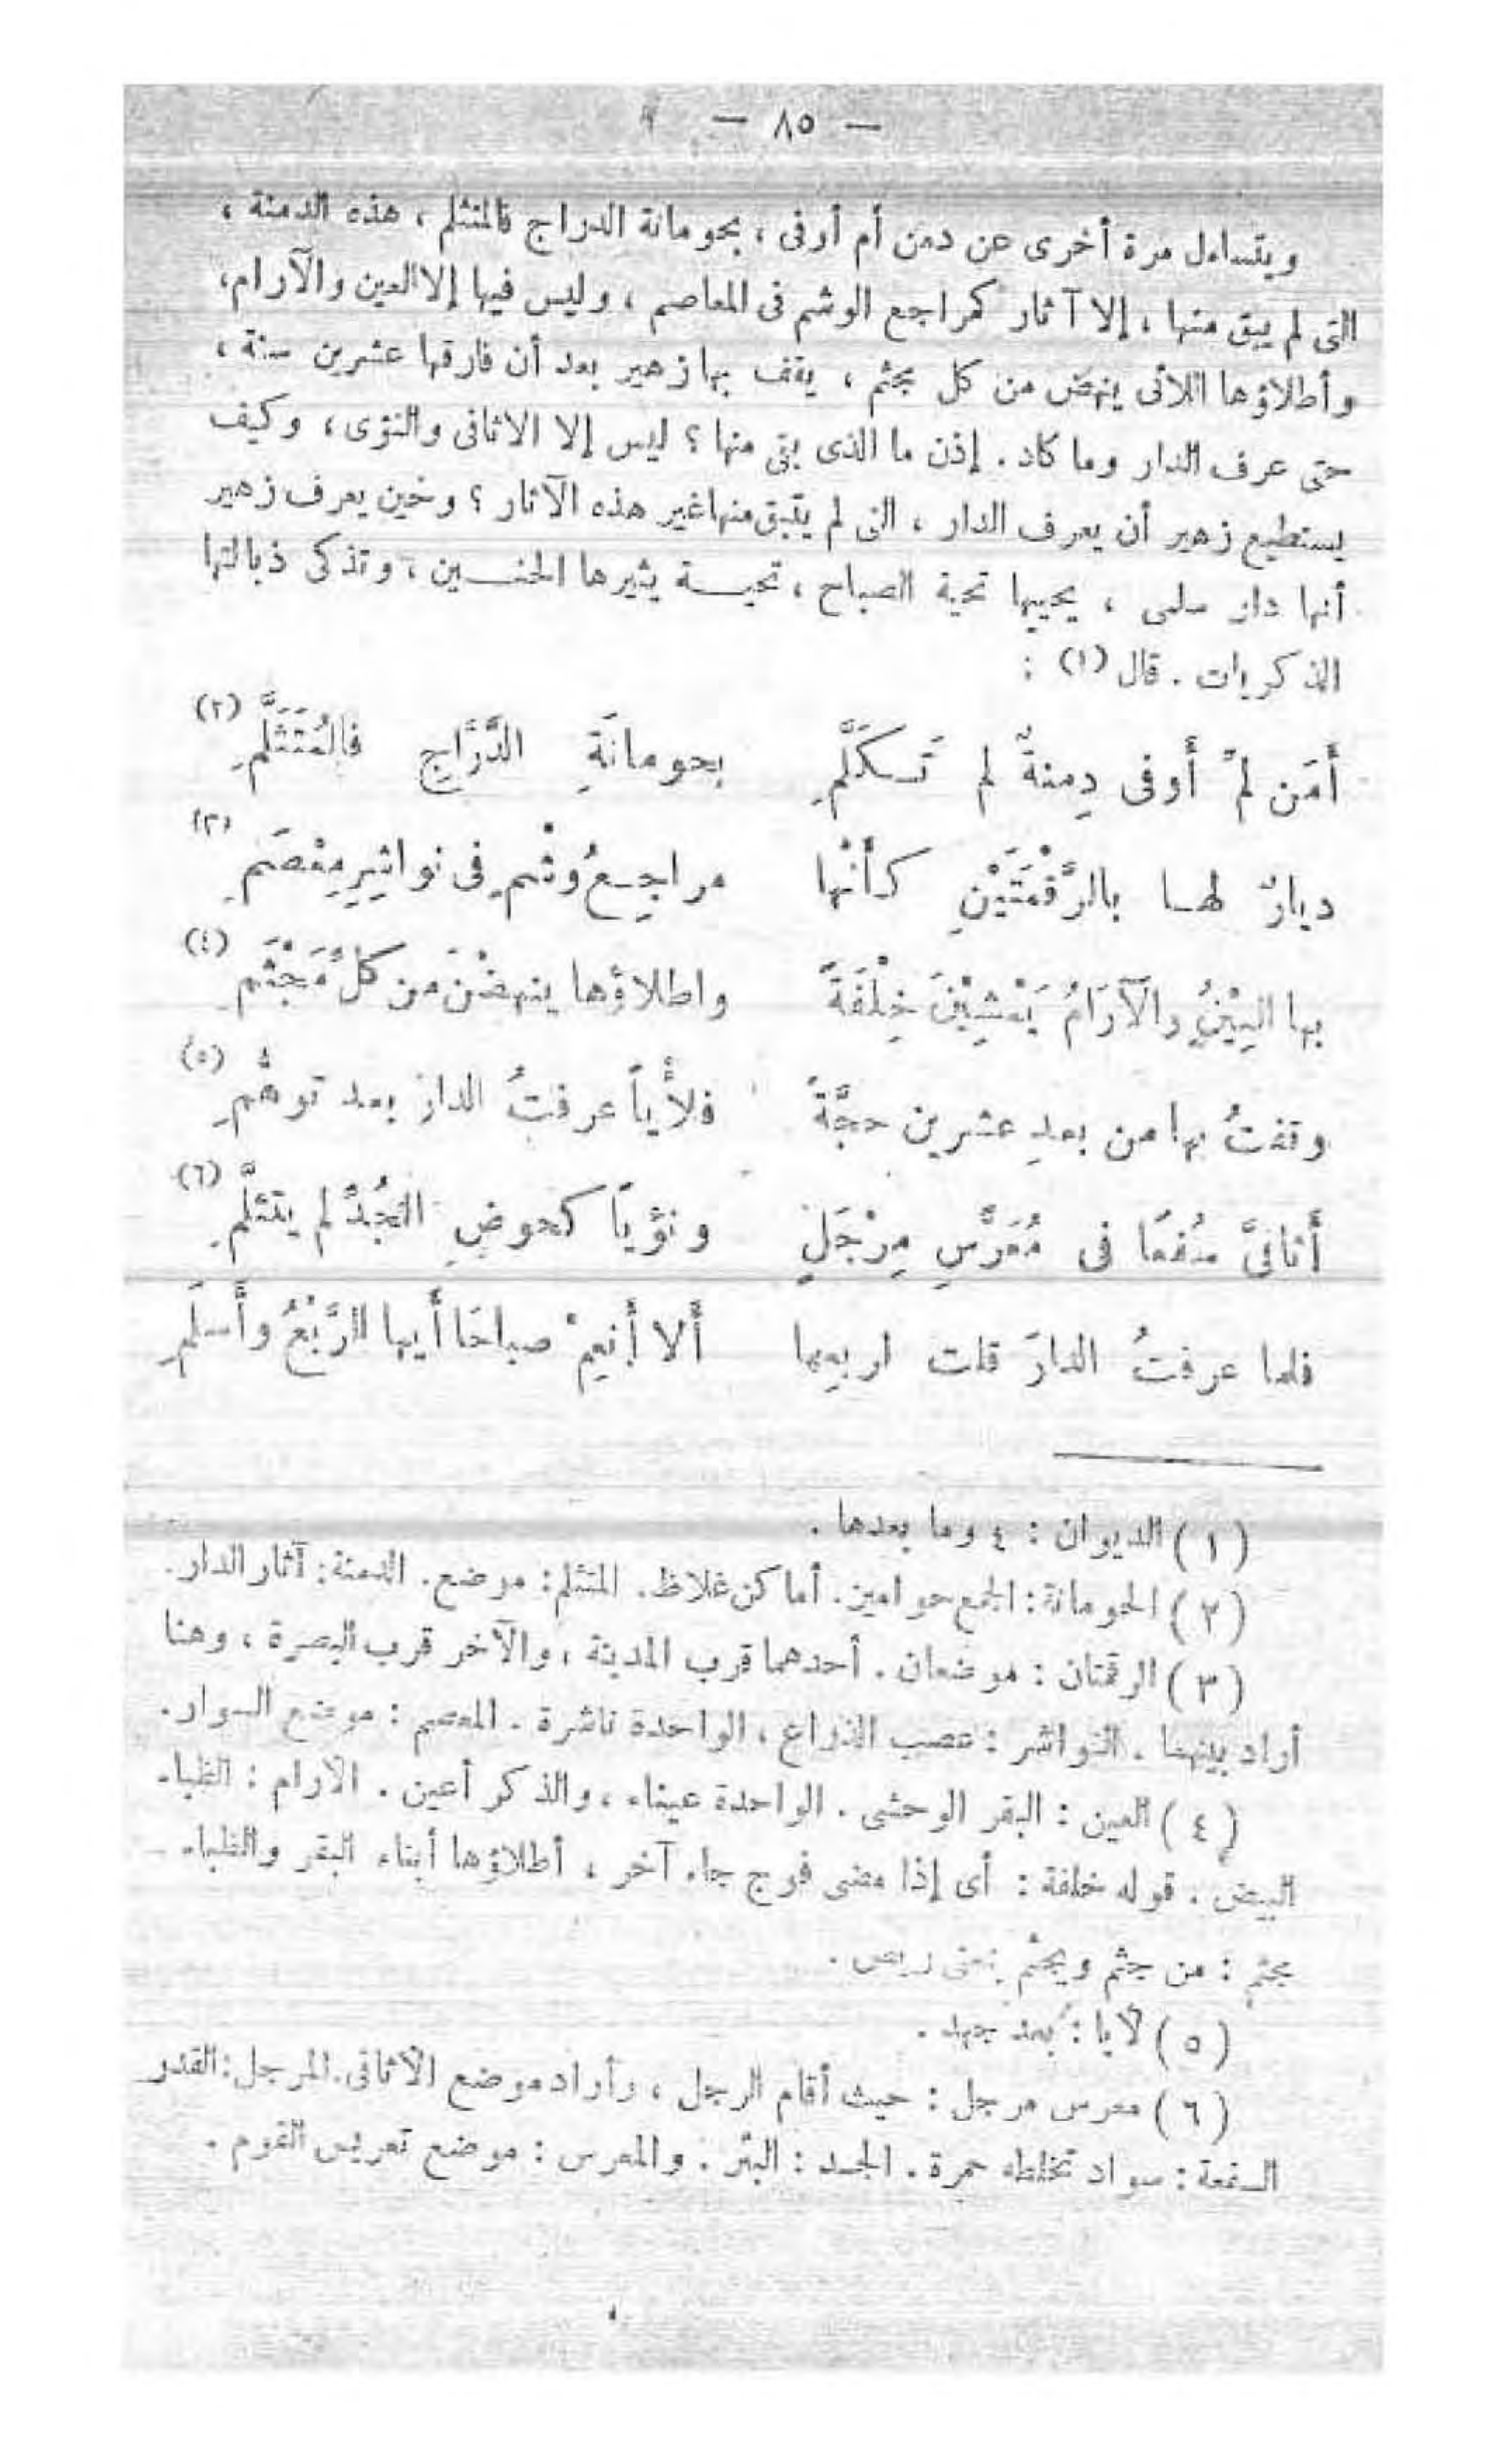 — ٨٥ —
ويتساءل مرة أخرى عن دمن أم أوفى ، بحومانة الدراج فالمتثلم ، هذه الدمنة ،
التى لم يبق منها ، إلا آثار كمراجع الوشم فى المعاصم ، وليس فيها إلا العين والآرام،
وأطلاؤها اللائى ينهض من كل مجثم ، يقف بها زهير بعد أن فارقها عشرين سنة ،
حتى عرف الدار وما كاد . إذن ما الذى بقى منها ؟ ليس إلا الاثافى والنؤى ، وكيف
يستطيع زهير أن يعرف الدار ، التى لم يتبق منها غير هذه الآثار ؟ وحين يعرف زهير
أنها دار سلمى ، يحييها تحية الصباح ، تحيـــة يثيرها الحنــــين ، وتذكى ذبالتها
الذكريات . قال (١) :
أَمَن لمِّ أَوفى دِمنةٌ لم تَـكَلَّمِ بحومانَةِ الدَّرَّاجِ فالمُتَثَلَّمِ (٢)
ديارٌ لهـا بالرَّقْمَتَيْنِ كـأنْها مراجِـعُ وشْمٍ فى نواثِيرِ مِعْصَمِ (٣)
بها العِيْنُ والآرَامُ يَمْشِيْنَ خِلْفَةً واطلاؤها ينهضْنَ من كلِّ مَجْثَمِ (٤)
وقفتُ بها من بعدِ عشرين حجَّةً فلأْياً عرفتُ الدارَ بعد توهُّمِ (٥)
أَثافىَّ سُفعًا فى مُعَرَّسِ مِرْجَلٍ ونؤياً كحوضِ الجُدِّ لم يتثلَّمِ (٦)
فلما عرفتُ الدارَ قلت لربعها أَلا أَنعِمْ صباحًا أَيها الرَّبْعُ وأَسلَمِ
(١) الديوان : ٤ وما بعدها .
(٢) الحومانة: الجمع حوامين. أماكن غلاظ. المتثلم: موضع. الدمنة: آثار الدار.
(٣) الرقمتان : موضعان . أحدهما قرب المدينة ، والآخر قرب البصرة ، وهنا
أراد بينهما . النواشر : عصب الذراع ، الواحدة ناشرة . المعصم : موضع السوار.
(٤) العين : البقر الوحشى . الواحدة عيناء ، والذكر أعين . الآرام : الظباء
البيض . قوله خلفة : أى إذا مضى فوج جاء آخر ، أطلاؤها أبناء البقر والظباء –
مجثم : من جثم ويجثم بمعنى ربض .
(٥) لأيا : بعد جهد .
(٦) معرس مرجل : حيث أقام الرجل ، وأراد موضع الأثافى. المرجل: القدر
السفعة : سواد تخلطه حمرة . الجـد : البئر . والمعرس : موضع تعريس القوم .